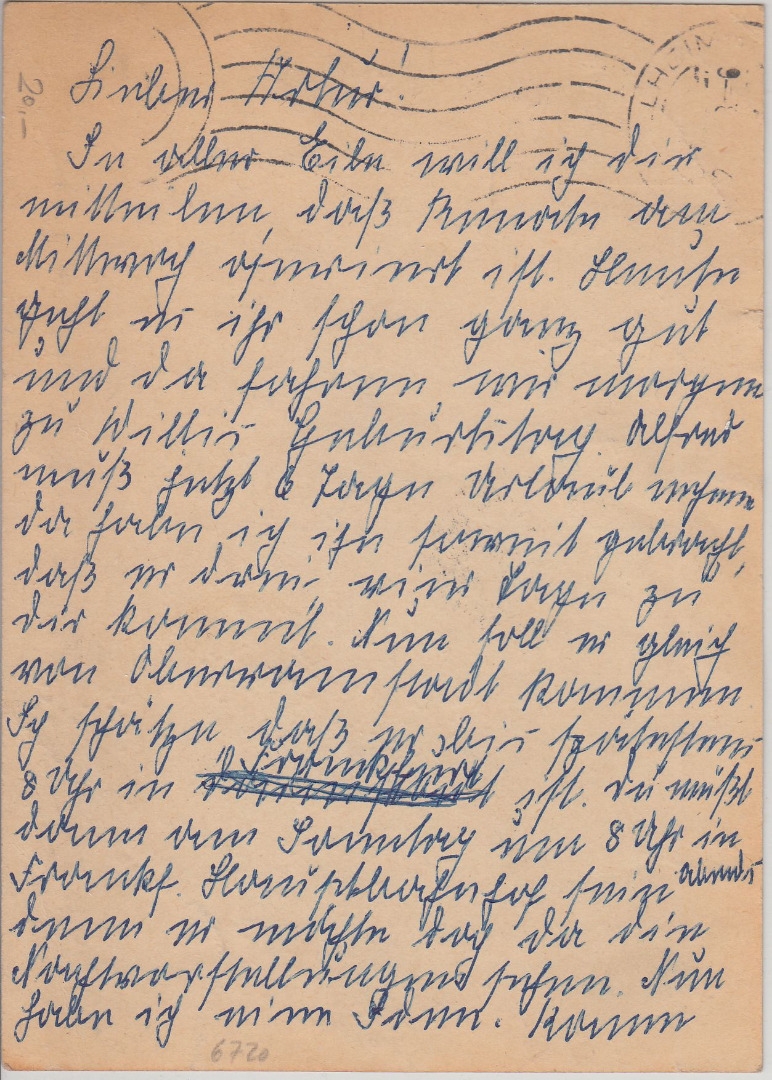 Lieber Artur!
In aller Eile will ich dir
mitteilen, daß Renate am
Mittwoch operiert ist. Heute
geht es ihr schon ganz gut
und da fahren wir morgen
zu Willis Geburtstag. Alfred
muß jetzt 6 Tage Urlaub nehmen
da habe ich ihn soweit gebracht,
daß er drei, vier Tage zu
dir kommt. Nun soll er gleich
von Oberramstadt kommen
Ich schätze daß er bis spätestens
Frankfurt
8 Uhr in ist. Du mußt
dann am Sonntag um 8 Uhr in
Frankf. Hauptbahnhof sein abends
denn er möchte doch da die
Nachtvorstellungen sehen. Nun
habe ich eine Idee. Komme
20,–
6720